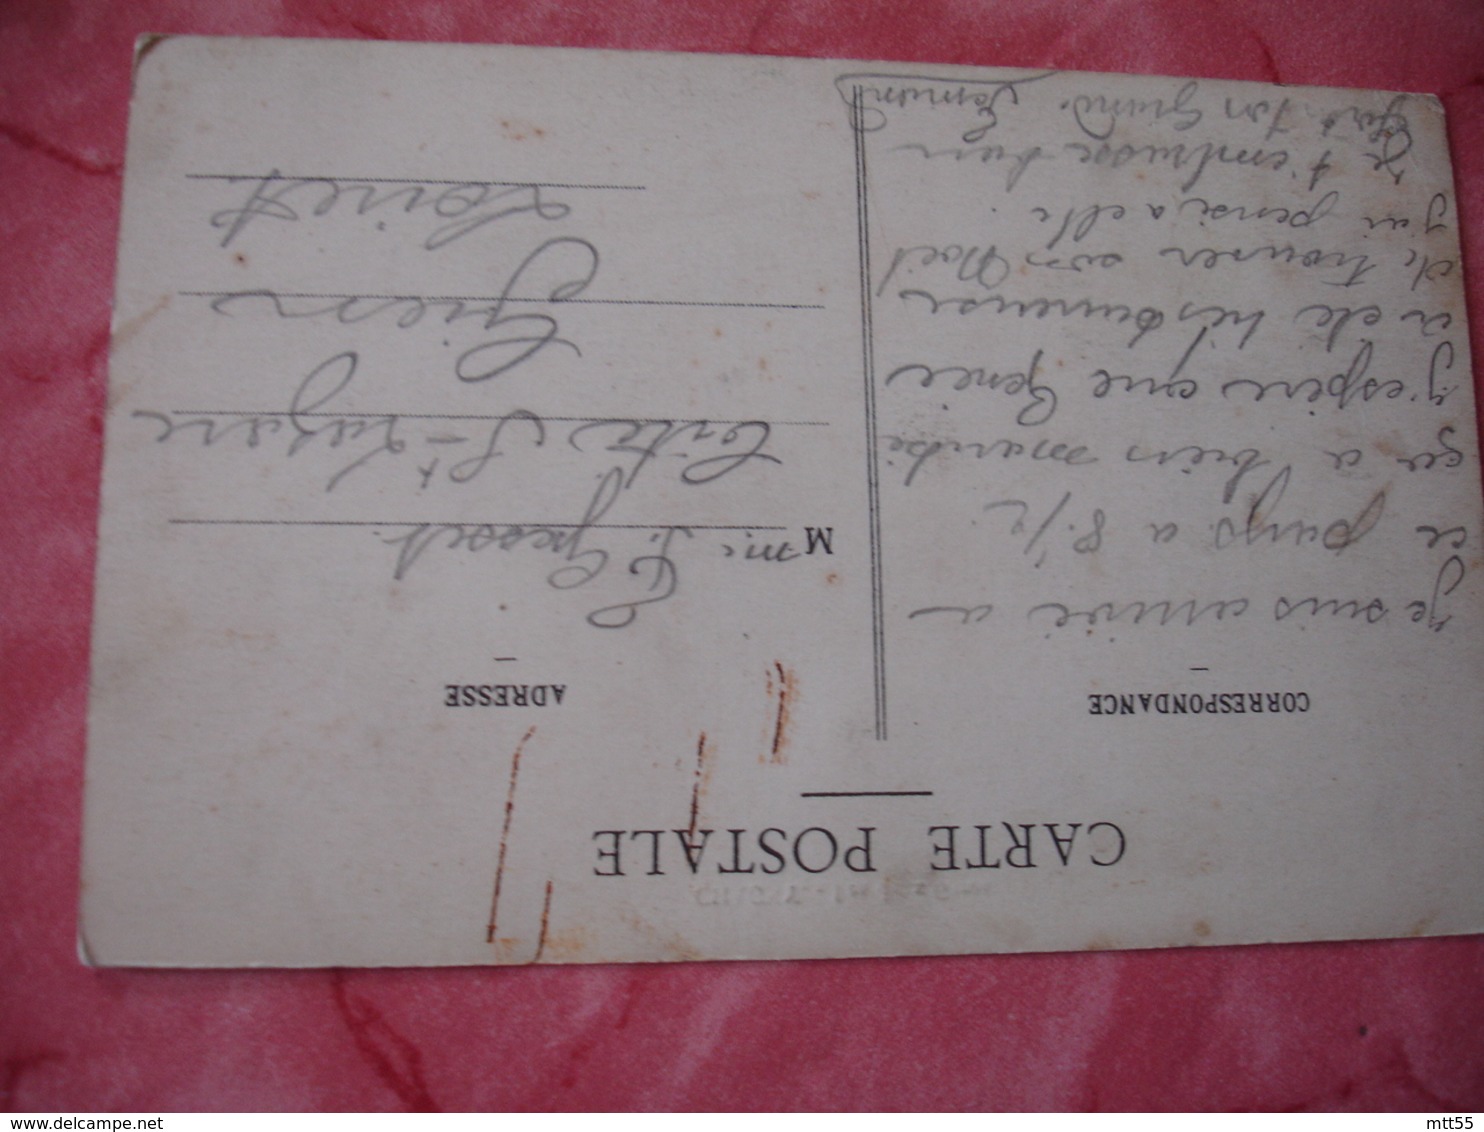 CARTE POSTALE
CORRESPONDANCE
Je suis arrivé a
ce pays a 8 1/2
ça a bien marché
j'espère que
a été très heureuse
de trouver son Noel
j'ai pensé a elle.
Je t'embrasse bien
fort. Ton Grand.
ADRESSE
M me
Cité St-Lazare
Gien
Loiret
mtt55